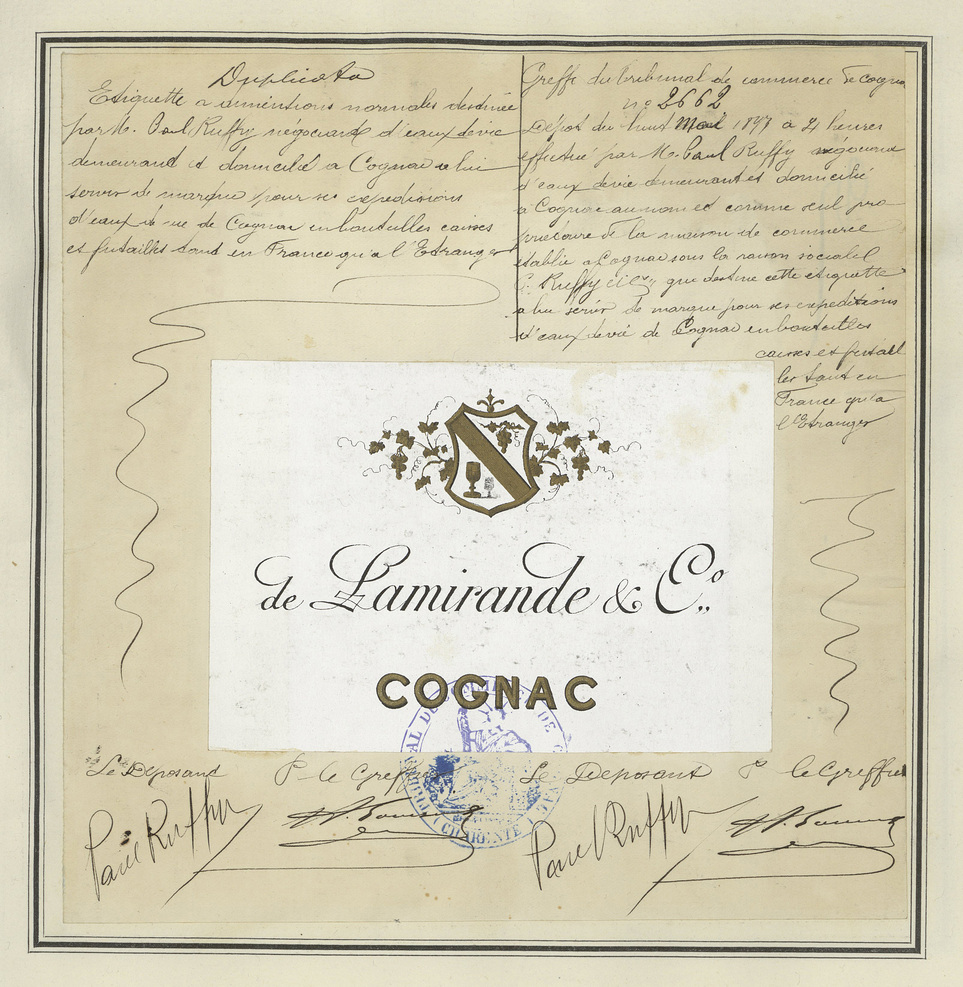 Duplicata
Etiquette a dimentions normales destinée
par M. Paul Ruffy négociant d'eaux devie
demeurant et domicilié a Cognac a lui
servir de marque pour ses expeditions
d'eaux de vie de Cognac en bouteilles caisses
et futailles tant en France qu'a l'Etranger
Greffe du Tribunal de commerce de Cognac
no 2662
Dépot du huit Mai 1897 a 4 heures
effectué par M. Paul Ruffy négociant
d'eaux devie demeurant et domicilié
à Cognac au nom et comme seul pro
priétaire de la maison de commerce
établie a Cognac sous la raison sociale
Ruffy & Cie que destine cette etiquette
a lui servir de marque pour ses expeditions
d'eaux devie de Cognac en bouteilles
caisses et futail
les tant en
France qu'a
l'Etranger
de Lamirande & Co.,
COGNAC
Le Deposant P. le Greffier Le Deposant P. le Greffier
Paul Ruffy Paul Ruffy
TRIBUNAL DE COMMERCE DE
(CHARENTE)